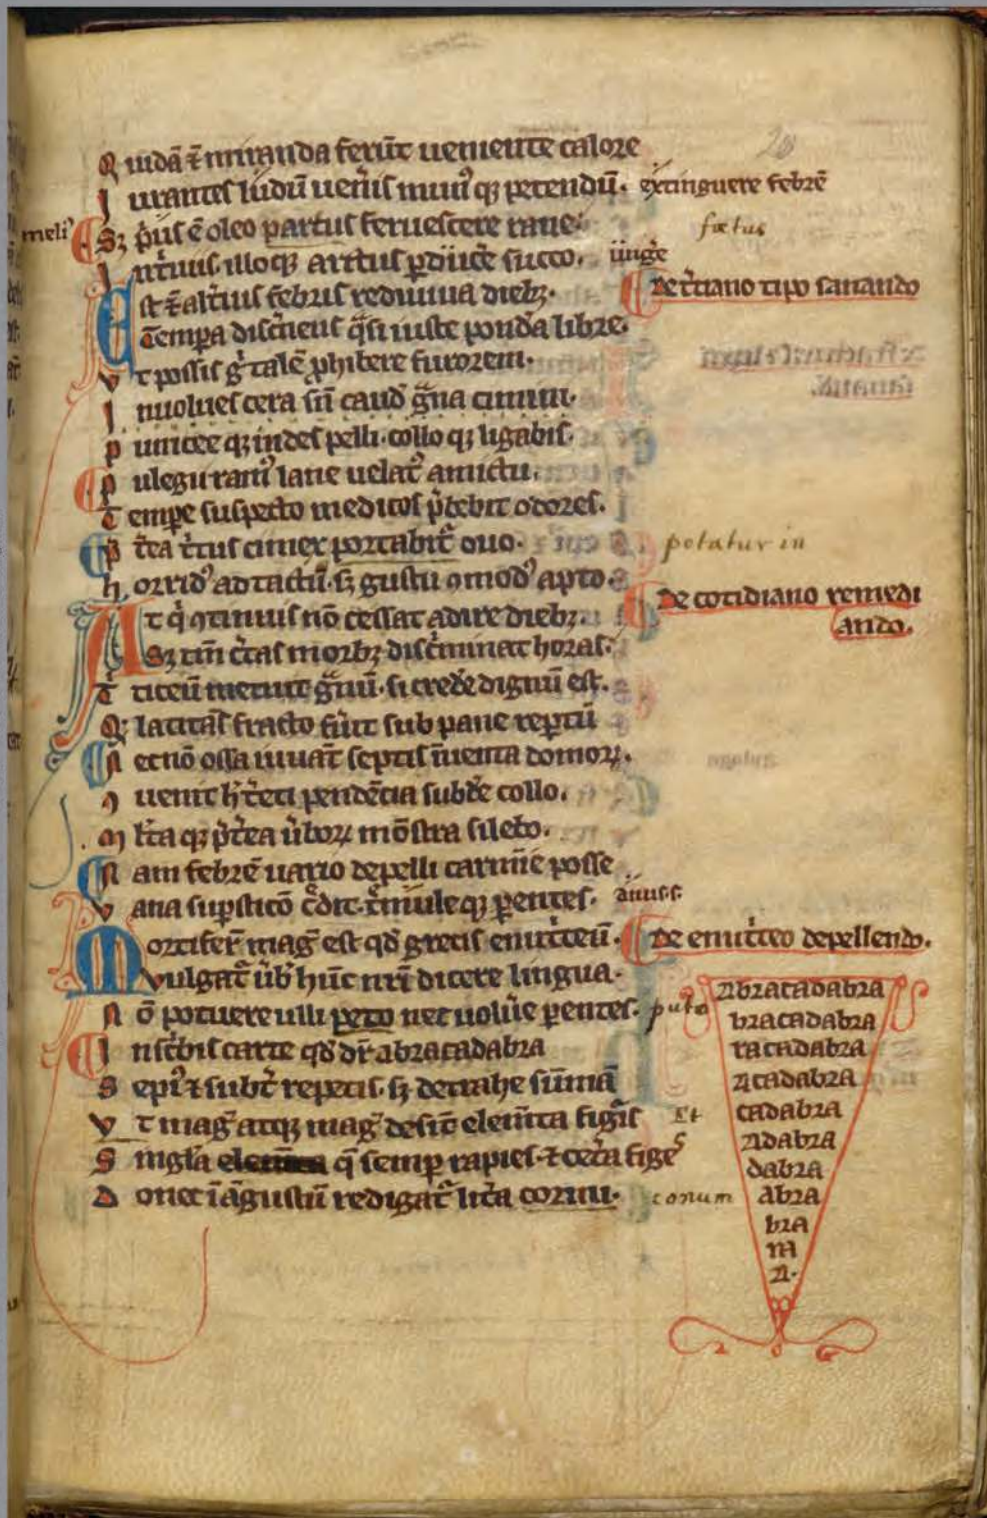 Quidā ⁊ miranda ferūt uemente calore
Iurantes ludū uenis nimi qꝫ petendū. extinguere febrē
meli Sꝫ p̄us ē oleo partus feruescere rane. fœtus
Intriuis. illoqꝫ artus ꝑducē succo. ūnge
Est ⁊ alt̄ius febris rediuiua diebꝫ. De t̄tiano tipo sanando
Tempa disc̄nens q̄si iuste pond̄a libre.
Vt possis g̊ talē ꝓhibere furorem.
Inuolues cera sn̄ caud̄ gͣna cimini.
Puniceeqꝫ indes pelli. colloqꝫ ligabis.
Pulegii ramꝰ lane uelatꝰ amictu.
Tempe suspecto medicos p̄bebit odores.
Pͣtea t̄tus cimex portabitr̄ ouo. potatur in
Horridꝰ adtactū. sꝫ gustu ꝯmodꝰ apto.
At q̇ ꝯtinuis nō cessat adire diebꝫ. De cotidiano remedi
ando.
Sꝫ tm̄ c̄tas morbꝫ disc̄iminat horas.
Titeū metuit gͣuiū. si cred̄e dignū est.
Q; latitās fracto fūit sub pane reptū
Nec nō ossa iuuāt septis īuenta domoꝝ.
ꝯuenit h̄ t̄eti pendētia subd̄e collo.
Ml̄taqꝫ p̄t̄ea ūboꝝ mōstra silebo.
Nam febrē uario depelli carmīe posse
Vana suꝑsticō c̄dit. t̄muleqꝫ ꝑentes. anus.s.
Mortifer̄ magꝰ est qd̄ grecis emit̄teū. De emit̄teo depellendo.
Vulgatr̄ ūbꝰ hūc nr̄i dicere lingua.
Nō potuere ulli peto nec uolūe ꝑentes. puto
Insc̄bis carte qd̄ dr̄ abracadabra
Sepiꝰ ⁊ subt̄ repetis. sꝫ detrahe sūmā
Vt magꝰ atqꝫ magꝰ desīt elem̄ta figͥs Et
Singl̄a q̄ semꝑ rapies. ⁊ cet̄a figeˢ
Donec ī āgustū redigatr̄ lit̄a cornu. conum
Abracadabra
bracadabra
racadabra
Acadabra
cadabra
Adabra
dabra
Abra
bra
ra
A.